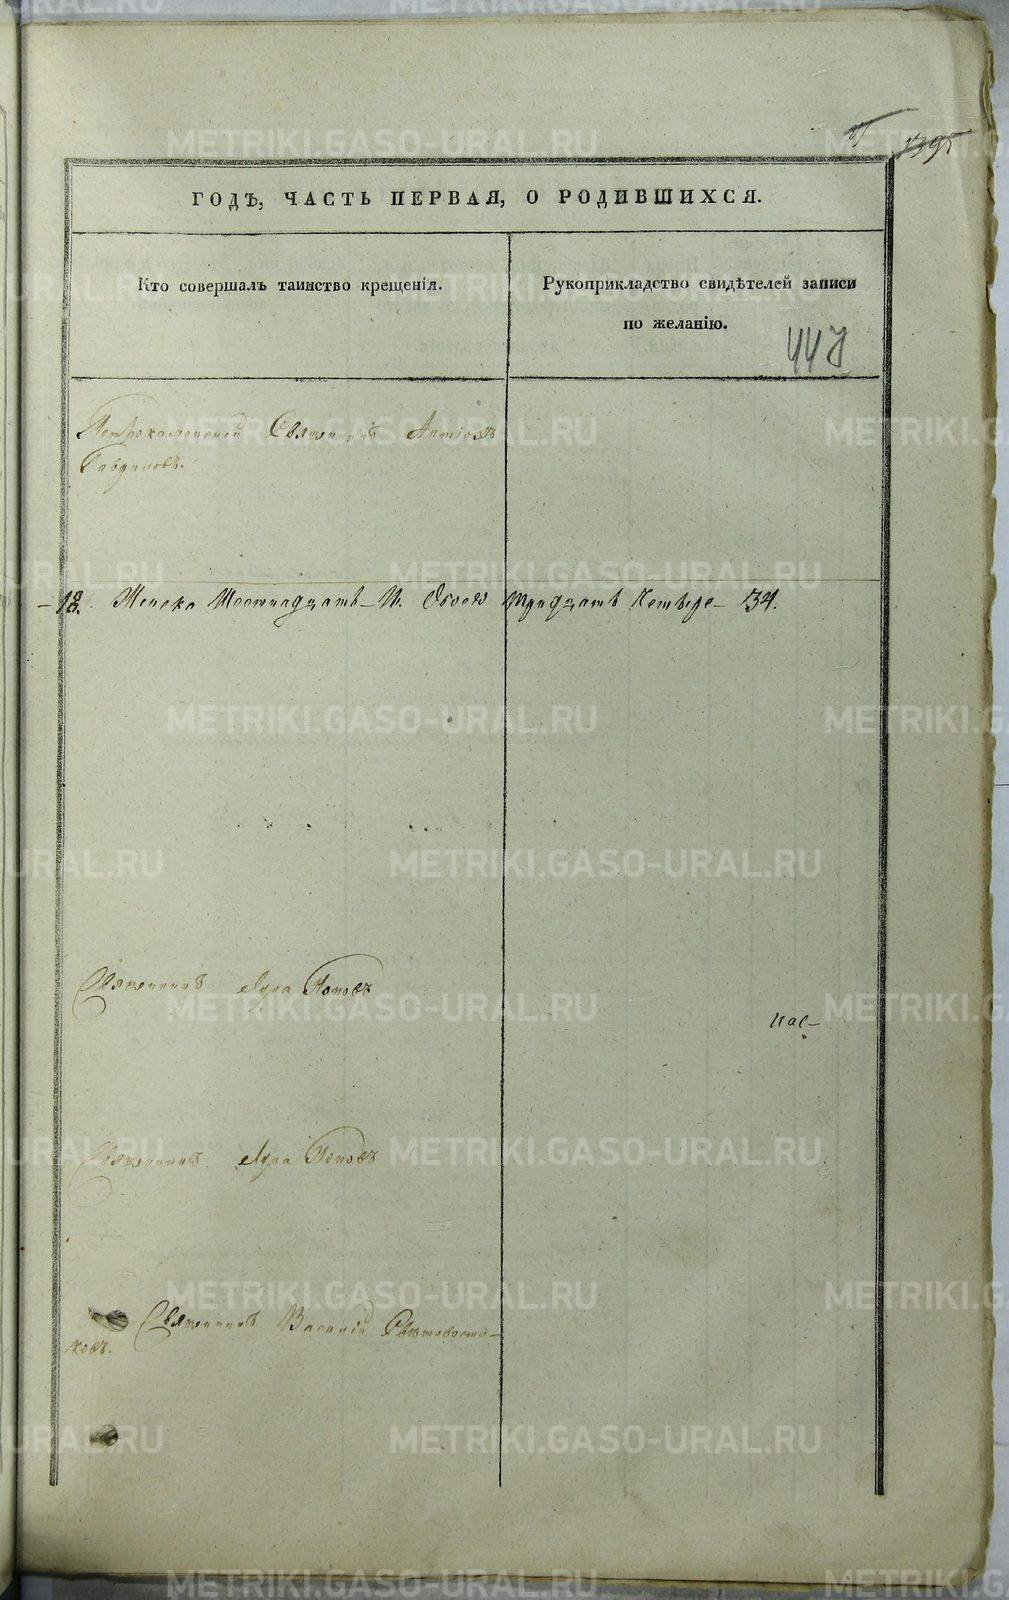 ГОДЪ, ЧАСТЬ ПЕРВАЯ, О РОДИВШИХСЯ.
Кто совершалъ таинство крещенія.
Рукоприкладство свидѣтелей записи
по желанію.
447
Петрокаменский Священникъ
Гаврилов.
Женска Шестнадцать И. Обоего Тридцать Четыре 34.
Священникъ Попов
Священникъ Попов
Священникъ Василий
ков.
METRIKI.GASO-URAL.RU